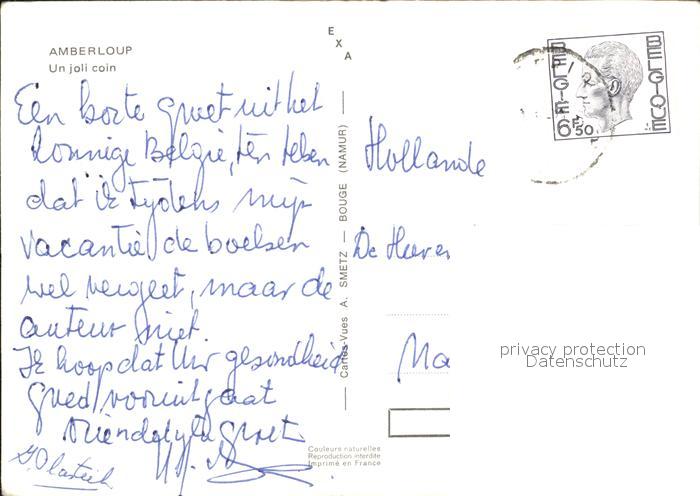 AMBERLOUP
Un joli coin
EXA
BELGIE BELGIQUE
6F50
Een korte groet uit het
zonnige België, ten teken
dat ik tijdens mijn
vacantie de boeken
wel vergeet, maar de
auteur niet.
Ik hoop dat Uw gezondheid
goed vooruitgaat
Vriendelijke groet
Hollande
De Heer
Ma
Cartes-Vues A. SMETZ — BOUGE (NAMUR)
privacy protection
Datenschutz
Couleurs naturelles
Reproduction interdite
Imprimé en France